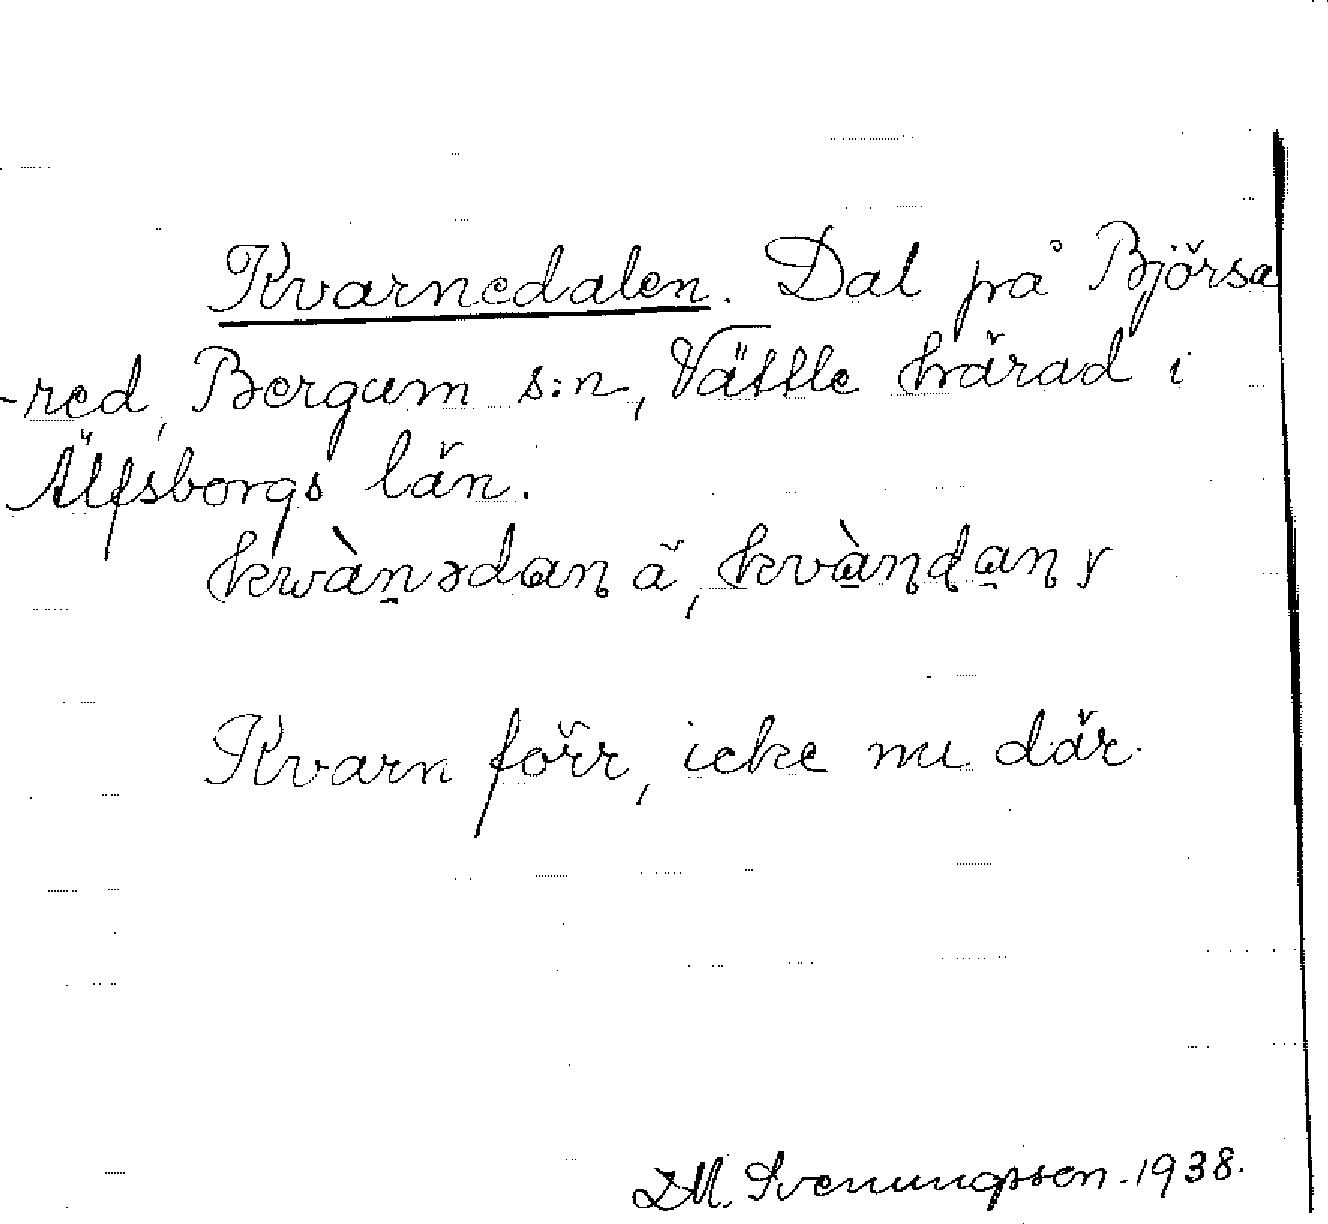 Kvarnedalen. Dal på Björsa
-red, Bergum s:n, Vättle härad i
Älfsborgs län.
Kvarn förr, icke nu där.
Svenungsson. 1938.